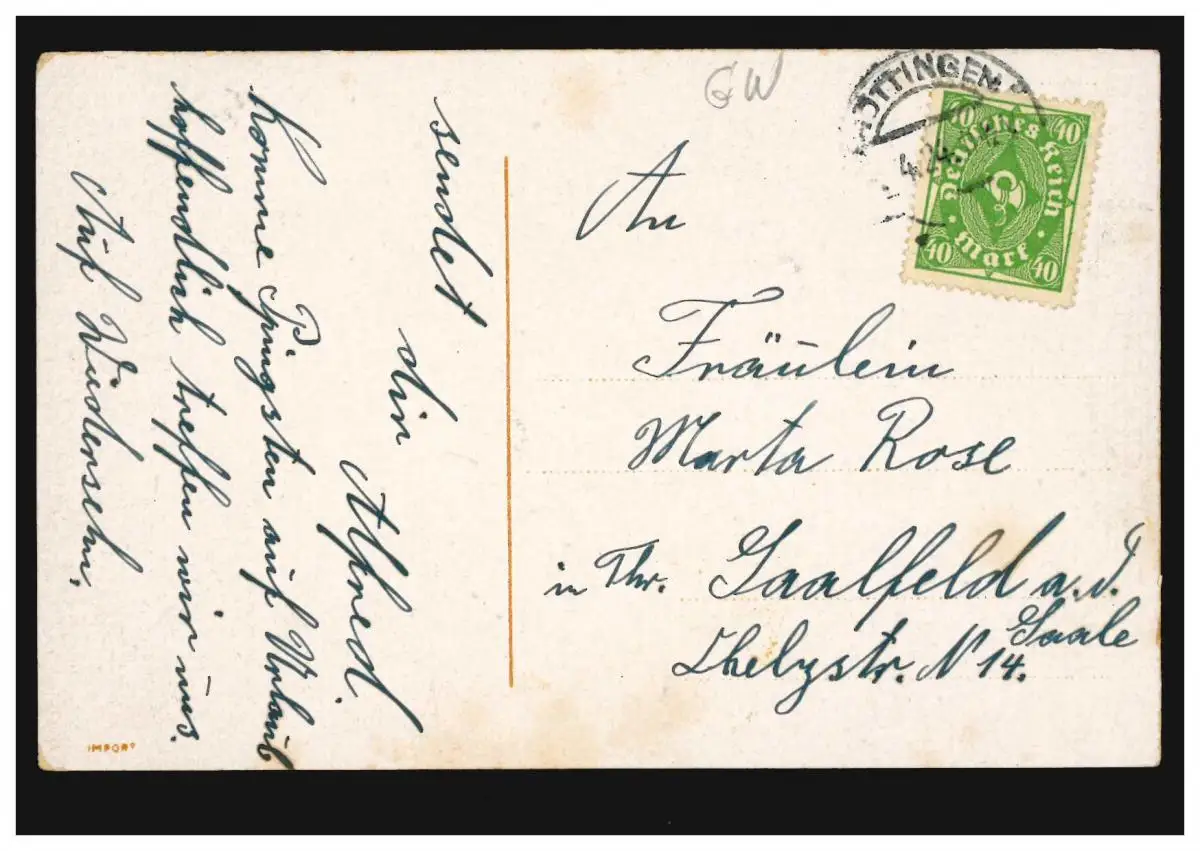 sendet
din
Alfred.
Komme Pfingsten auf Urlaub
hoffendlich treffen wir uns.
Auf Wiedersehn.
GW
GÖTTINGEN
4.24
40 40
Deutsches Reich
Mark
40 40
An
Fräulein
Marta Rose
in Thr. Saalfeld a.d.
Saale
str. N 14.
IMPORT